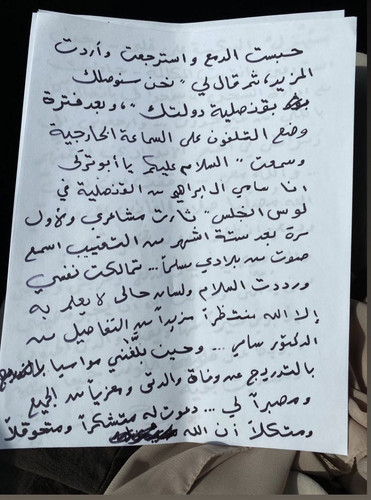 حبست الدمع واسترجعت وأردت
المزيد، ثم قال لي "نحن سنوصلك
بقنصلية دولتك"، وبعد فترة
وضع التلفون على السماعة الخارجية
وسمعت "السلام عليكم يا أبو تركي
انا سامي ال ابراهيم من القنصلية في
لوس انجلس" ثارت مشاعري ولأول
مرة بعد ستة اشهر من التعذيب اسمع
صوت من بلادي سلماً... تمالكت نفسي
ورددت السلام ولسان حالي لا يعلم به
إلا الله منتظراً مزيداً من التفاصيل من
الدكتور سامي... وحين بلّغني مواسيا
بالتدريج عن وفاة والدتي ومعزياً من الجميع
ومصبراً لي... دعوت له متشكراً ومتحوقلاً
ومتكلاً أن الله